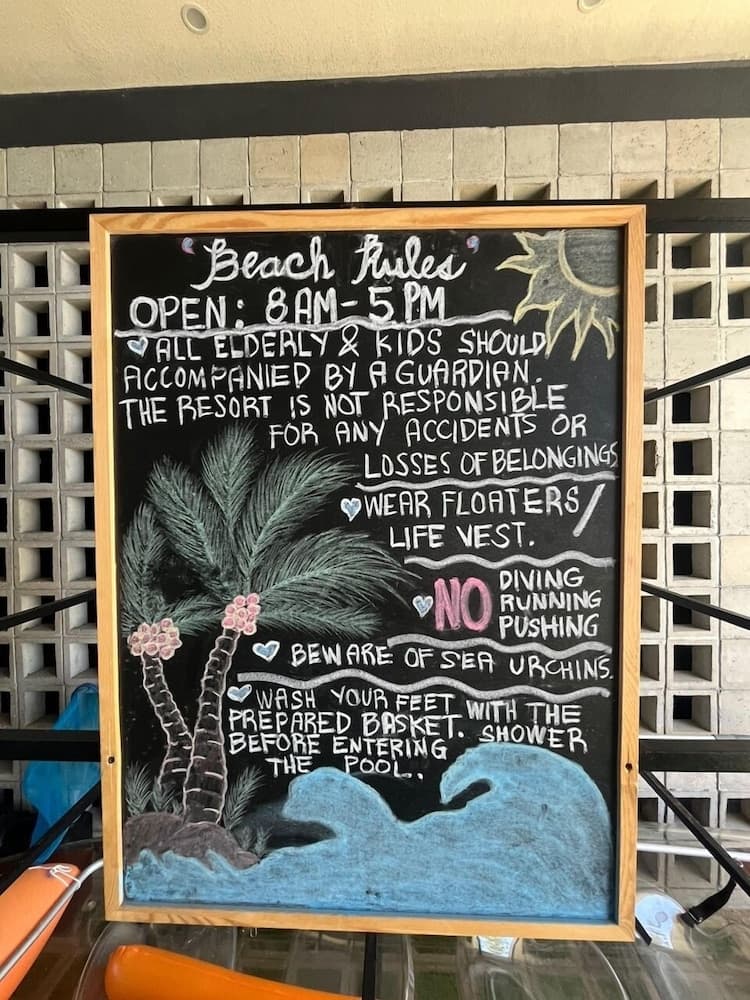 'Beach Rules'
OPEN: 8 AM - 5 PM
ALL ELDERLY & KIDS SHOULD
ACCOMPANIED BY A GUARDIAN.
THE RESORT IS NOT RESPONSIBLE
FOR ANY ACCIDENTS OR
LOSSES OF BELONGINGS
WEAR FLOATERS/
LIFE VEST.
NO DIVING
RUNNING
PUSHING
BEWARE OF SEA URCHINS.
WASH YOUR FEET WITH THE
PREPARED BASKET. SHOWER
BEFORE ENTERING
THE POOL.